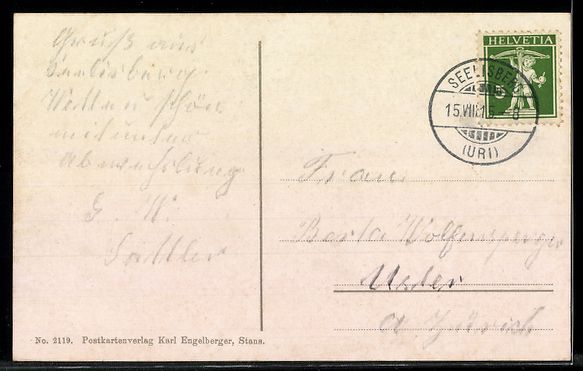 Gruß aus
Seelisberg.
Wetter schön
mitunter
Abwechslung
G. W.
Sattler
HELVETIA
SEELISBERG
15.VIII.15.–8
(URI)
Frau
Berta Wolfensperger
Uster
Ct. Zürich
No. 2119. Postkartenverlag Karl Engelberger, Stans.